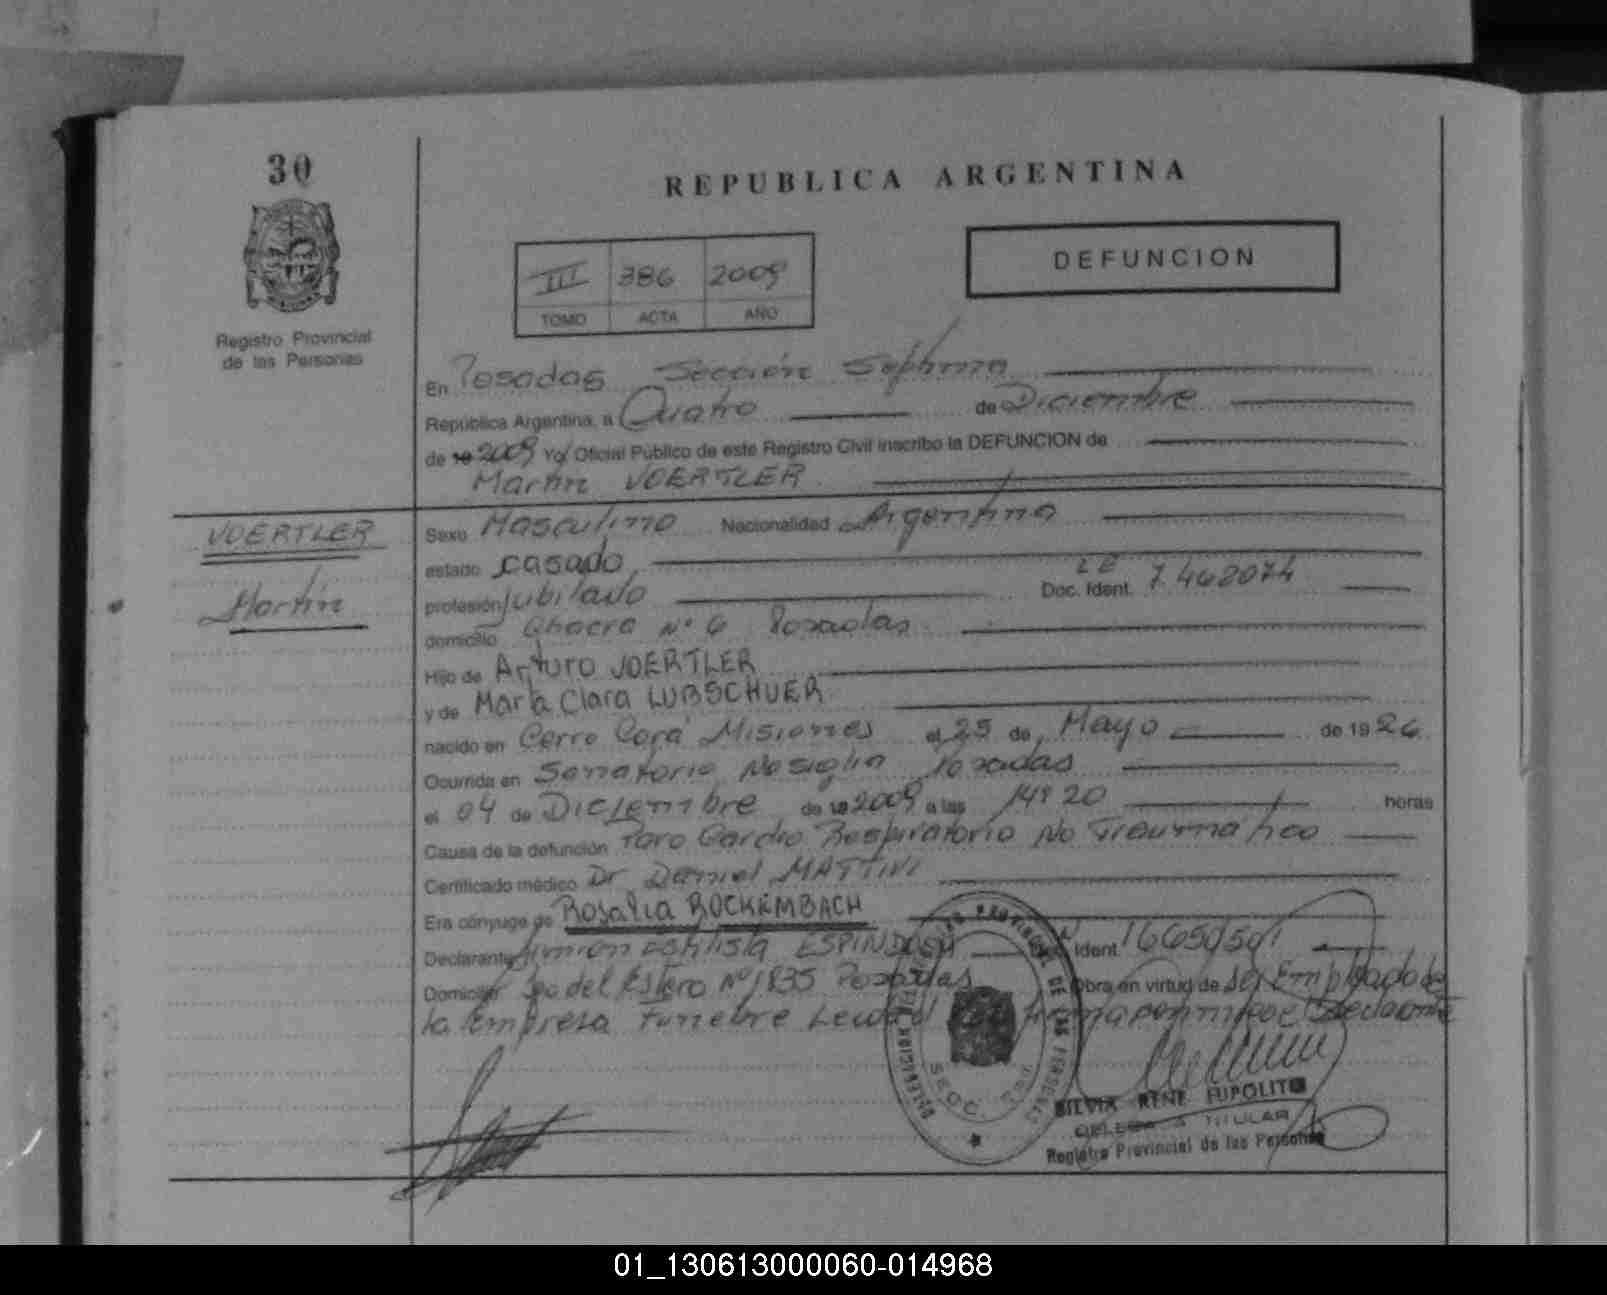 30
REPUBLICA ARGENTINA
III 386 2009
TOMO ACTA AÑO
DEFUNCION
Registro Provincial
de las Personas
En Posadas Sección Séptima
República Argentina, a Cuatro de Diciembre
de 19 2009 Yo, Oficial Público de este Registro Civil inscribo la DEFUNCION de
Martín VOERTLER
VOERTLER
Martín
Sexo Masculino Nacionalidad Argentina
estado casado
profesión Jubilado Doc. Ident. LE 7.468074
domicilio Chacra Nº 6 Posadas
Hijo de Arturo VOERTLER
y de María Clara LUBSCHUER
nacido en Cerro Corá Misiones el 25 de Mayo de 1926
Ocurrida en Sanatorio Nosiglia Posadas
el 04 de Diciembre de 19 2009 a las 14º 20 horas
Causa de la defunción Paro Cardio Respiratorio No Traumático
Certificado médico Dr Daniel MATTIVI
Era cónyuge de Rosalia ROCKEMBACH
Declarante ESPINDOLA Ident. 16650501
Domicilio Sgo del Estero Nº 1835 Posadas Obra en virtud de ser Empleado de
la Empresa Funebre firma declarante
REGISTRO PROVINCIAL DE LAS PERSONAS
DELEGACION
SECC.
SILVIA RENE HIPOLITO
DELEGADA TITULAR
Registro Provincial de las Personas
01_130613000060-014968